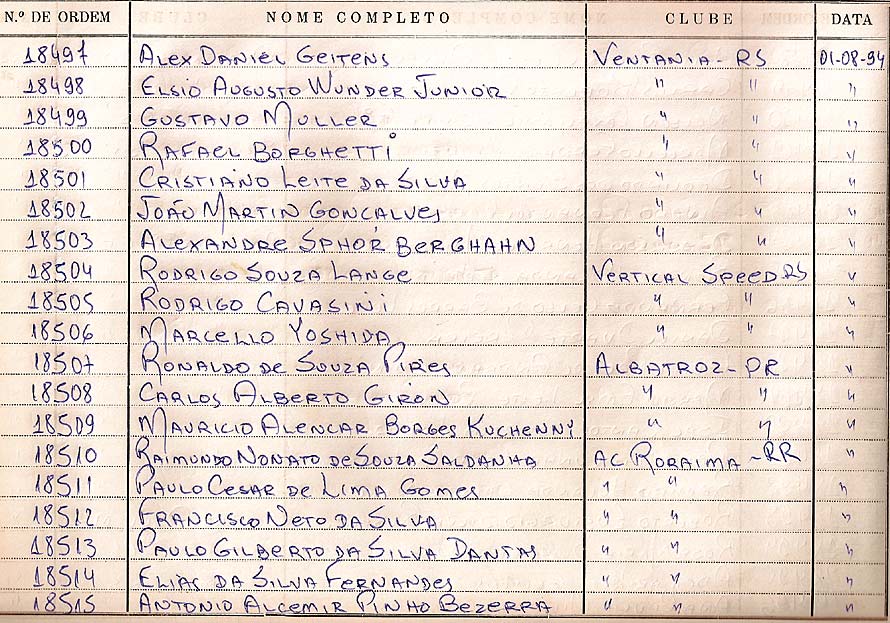 N.º DE ORDEM NOME COMPLETO CLUBE DATA
18497 ALEX DANIEL GEITENS VENTANIA - RS 01-08-94
18498 ELSIO AUGUSTO WUNDER JUNIOR " " "
18499 GUSTAVO MULLER " " "
18500 RAFAEL BORGHETTI " " "
18501 CRISTIANO LEITE DA SILVA " " "
18502 JOÃO MARTIN GONCALVES " " "
18503 ALEXANDRE SPHOR BERGHAHN " " "
18504 RODRIGO SOUZA LANGE VERTICAL SPEED RS "
18505 RODRIGO CAVASINI " " "
18506 MARCELLO YOSHIDA " " "
18507 RONALDO DE SOUZA PIRES ALBATROZ - PR "
18508 CARLOS ALBERTO GIRON " " "
18509 MAURICIO ALENCAR BORGES KUCHENNY " " "
18510 RAIMUNDO NONATO DE SOUZA SALDANHA AC RORAIMA - RR "
18511 PAULO CESAR DE LIMA GOMES " " "
18512 FRANCISCO NETO DA SILVA " " "
18513 PAULO GILBERTO DA SILVA DANTAS " " "
18514 ELIAS DA SILVA FERNANDES " " "
18515 ANTONIO ALCEMIR PINHO BEZERRA " " "